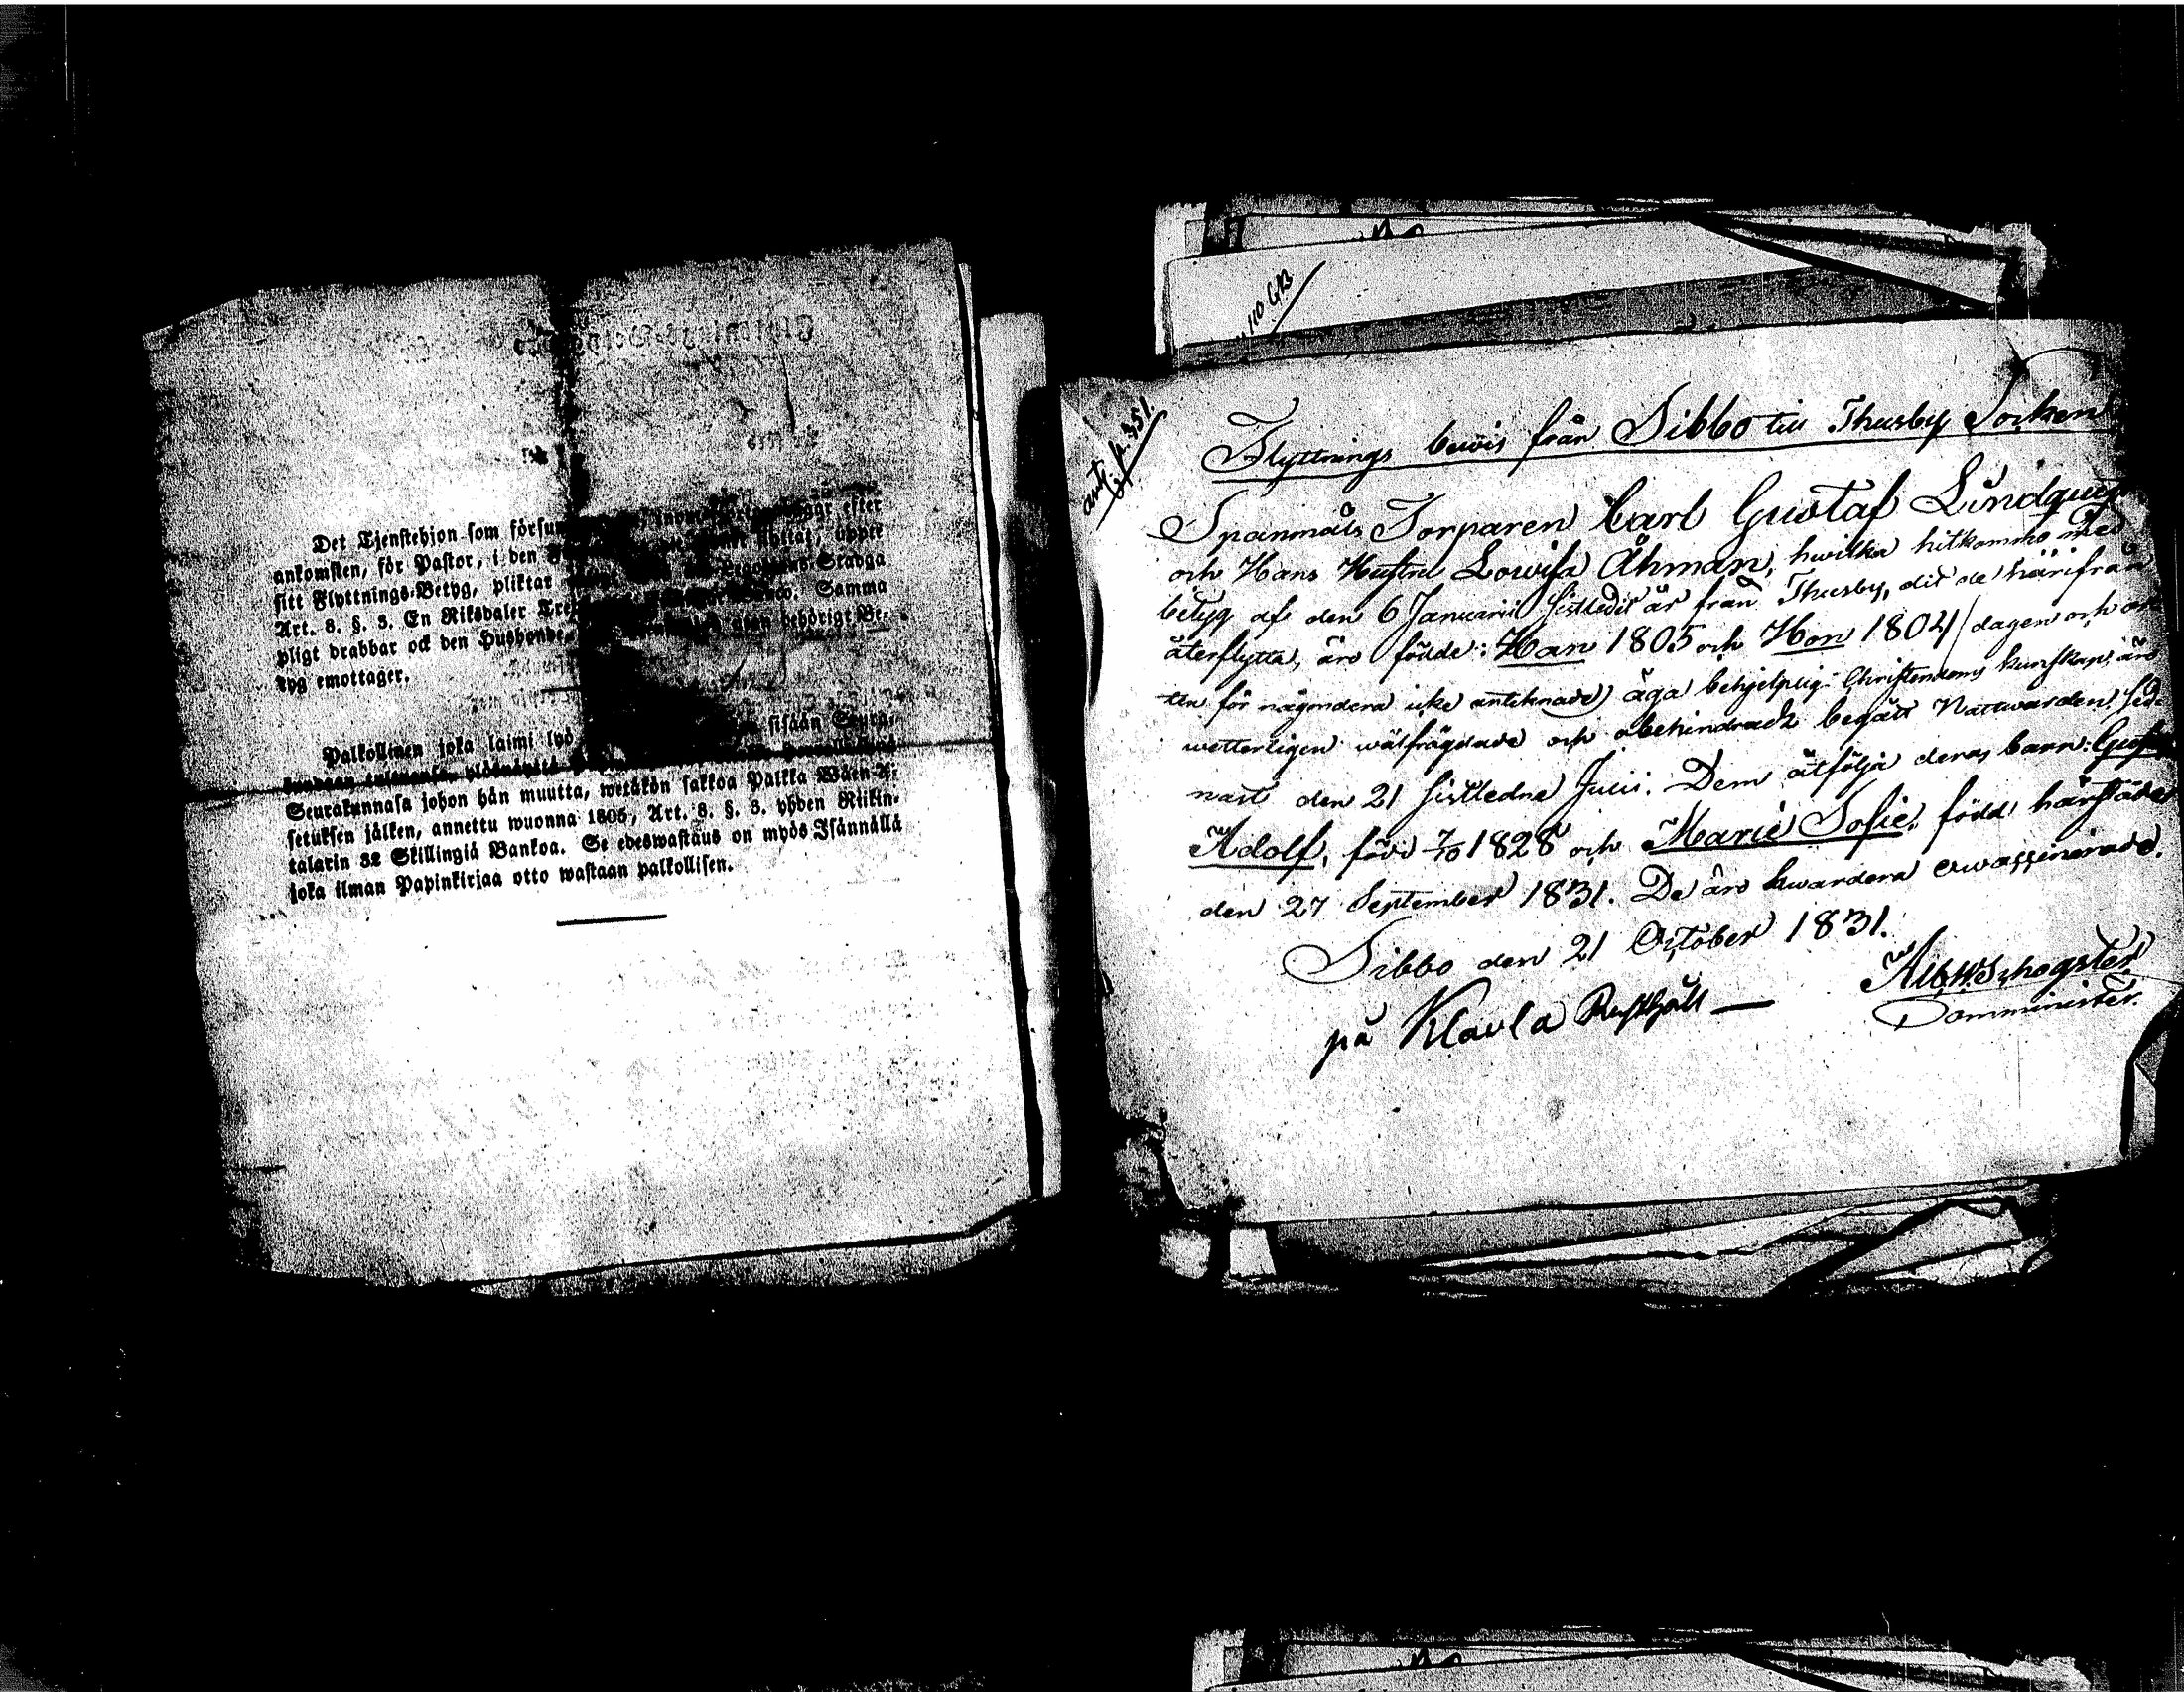 Det Tjenstehjon som försum efter
ankomsten, för Pastor, i den flyttat, uppte
sitt Flyttnings-Betyg, pliktar Stadga
Art. 8. §. 3. En Riksdaler Tre Banco. Samma
pligt drabbar ock den Husbonde, utan behörigt Be-
tyg emottager.
Palkollinen joka laimi lyö sisään Seura-
Seurakunnasa johon hän muutta, wetäkön sakkoa Palkka Wäen A-
setuksen jälken, annettu wuonna 1805, Art. 8. §. 3. yhden Riikin-
talarin 32 Skillingiä Bankoa. Se edeswastaus on myös Isännällä
joka ilman Papinkirjaa otto wastaan palkollisen.
110 GB
ant. p. 351.
Flyttnings bewis från Sibbo till Thusby Socken
Spanmåls Torparen Carl Gustaf Lindqvist
och Hans Hustru Lowisa Åhman, hwilka hitkommo med
betyg af den 6 Januarii sistledit år från Thusby, dit de härifrån
återflytta, äro födde: Han 1805 och Hon 1804 / dagen och or-
ten för någondera icke antecknade) äga behjelplig Christendoms kunskap, äro
wetterligen wälfrägdade och obehindradt begått Nattwarden, sed-
nast den 21 sistledne Julii. Dem åtfölja deras barn: Gustaf
Adolf, född 7/10 1828 och Maria Sofia, född härstädes
den 27 September 1831. De äro hwardera owaccinerade.
Sibbo den 21 October 1831.
Comminister.
på Klavla Rusthåll